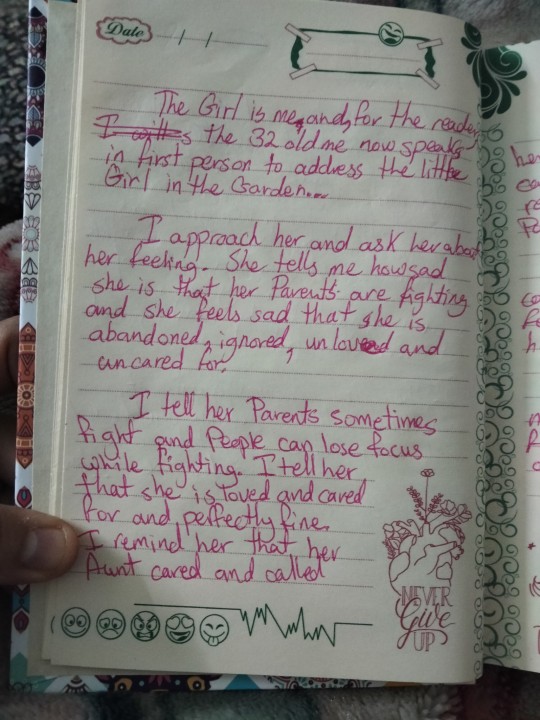 Date / /
The Girl is me, and, for the reader
I will s the 32 old me now speaks
in first person to address the little
Girl in the Garden...
I approach her and ask her about
her feeling. She tells me how sad
she is that her Parents are fighting
and she feels sad that she is
abandoned, ignored, unloved and
uncared for.
I tell her Parents sometimes
fight and People can lose focus
while fighting. I tell her
that she is loved and cared
for and perfectly fine.
I remind her that her
Aunt cared and called
NEVER
Give
UP